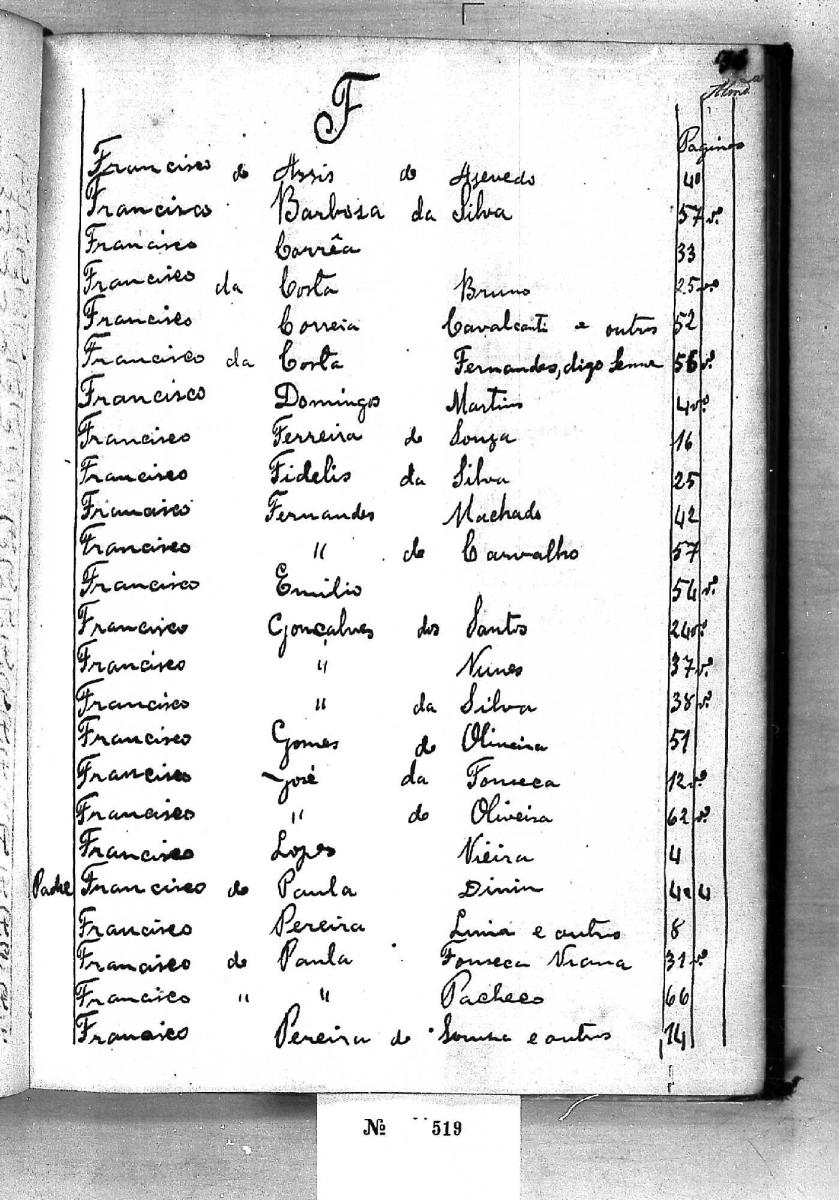 F
Paginas
Francisco de Assis de Azevedo 40
Francisco Barbosa da Silva 57 vº
Francisco Corrêa 33
Francisco da Costa Bruno 25 vº
Francisco Correia Cavalcanti e outros 52
Francisco da Costa Fernandes, digo Senna vº
Francisco Domingos Martins 4 vº
Francisco Ferreira de Souza 16
Francisco Fidelis da Silva 25
Francisco Fernandes Machado 42
Francisco " de Carvalho 57
Francisco Emilio 54 vº
Francisco Gonçalves dos Santos 24 vº
Francisco " Nunes 37 vº
Francisco " da Silva 38 vº
Francisco Gomes de Oliveira 51
Francisco José da Fonseca 12 vº
Francisco " de Oliveira 62 vº
Francisco Lopes Vieira 4
Padre Francisco de Paula 4
Francisco Pereira Lima e outros 8
Francisco de Paula Fonseca Viana 31 vº
Francisco " " Pacheco 66
Francisco Pereira de Souza e outros 14
Nº 519